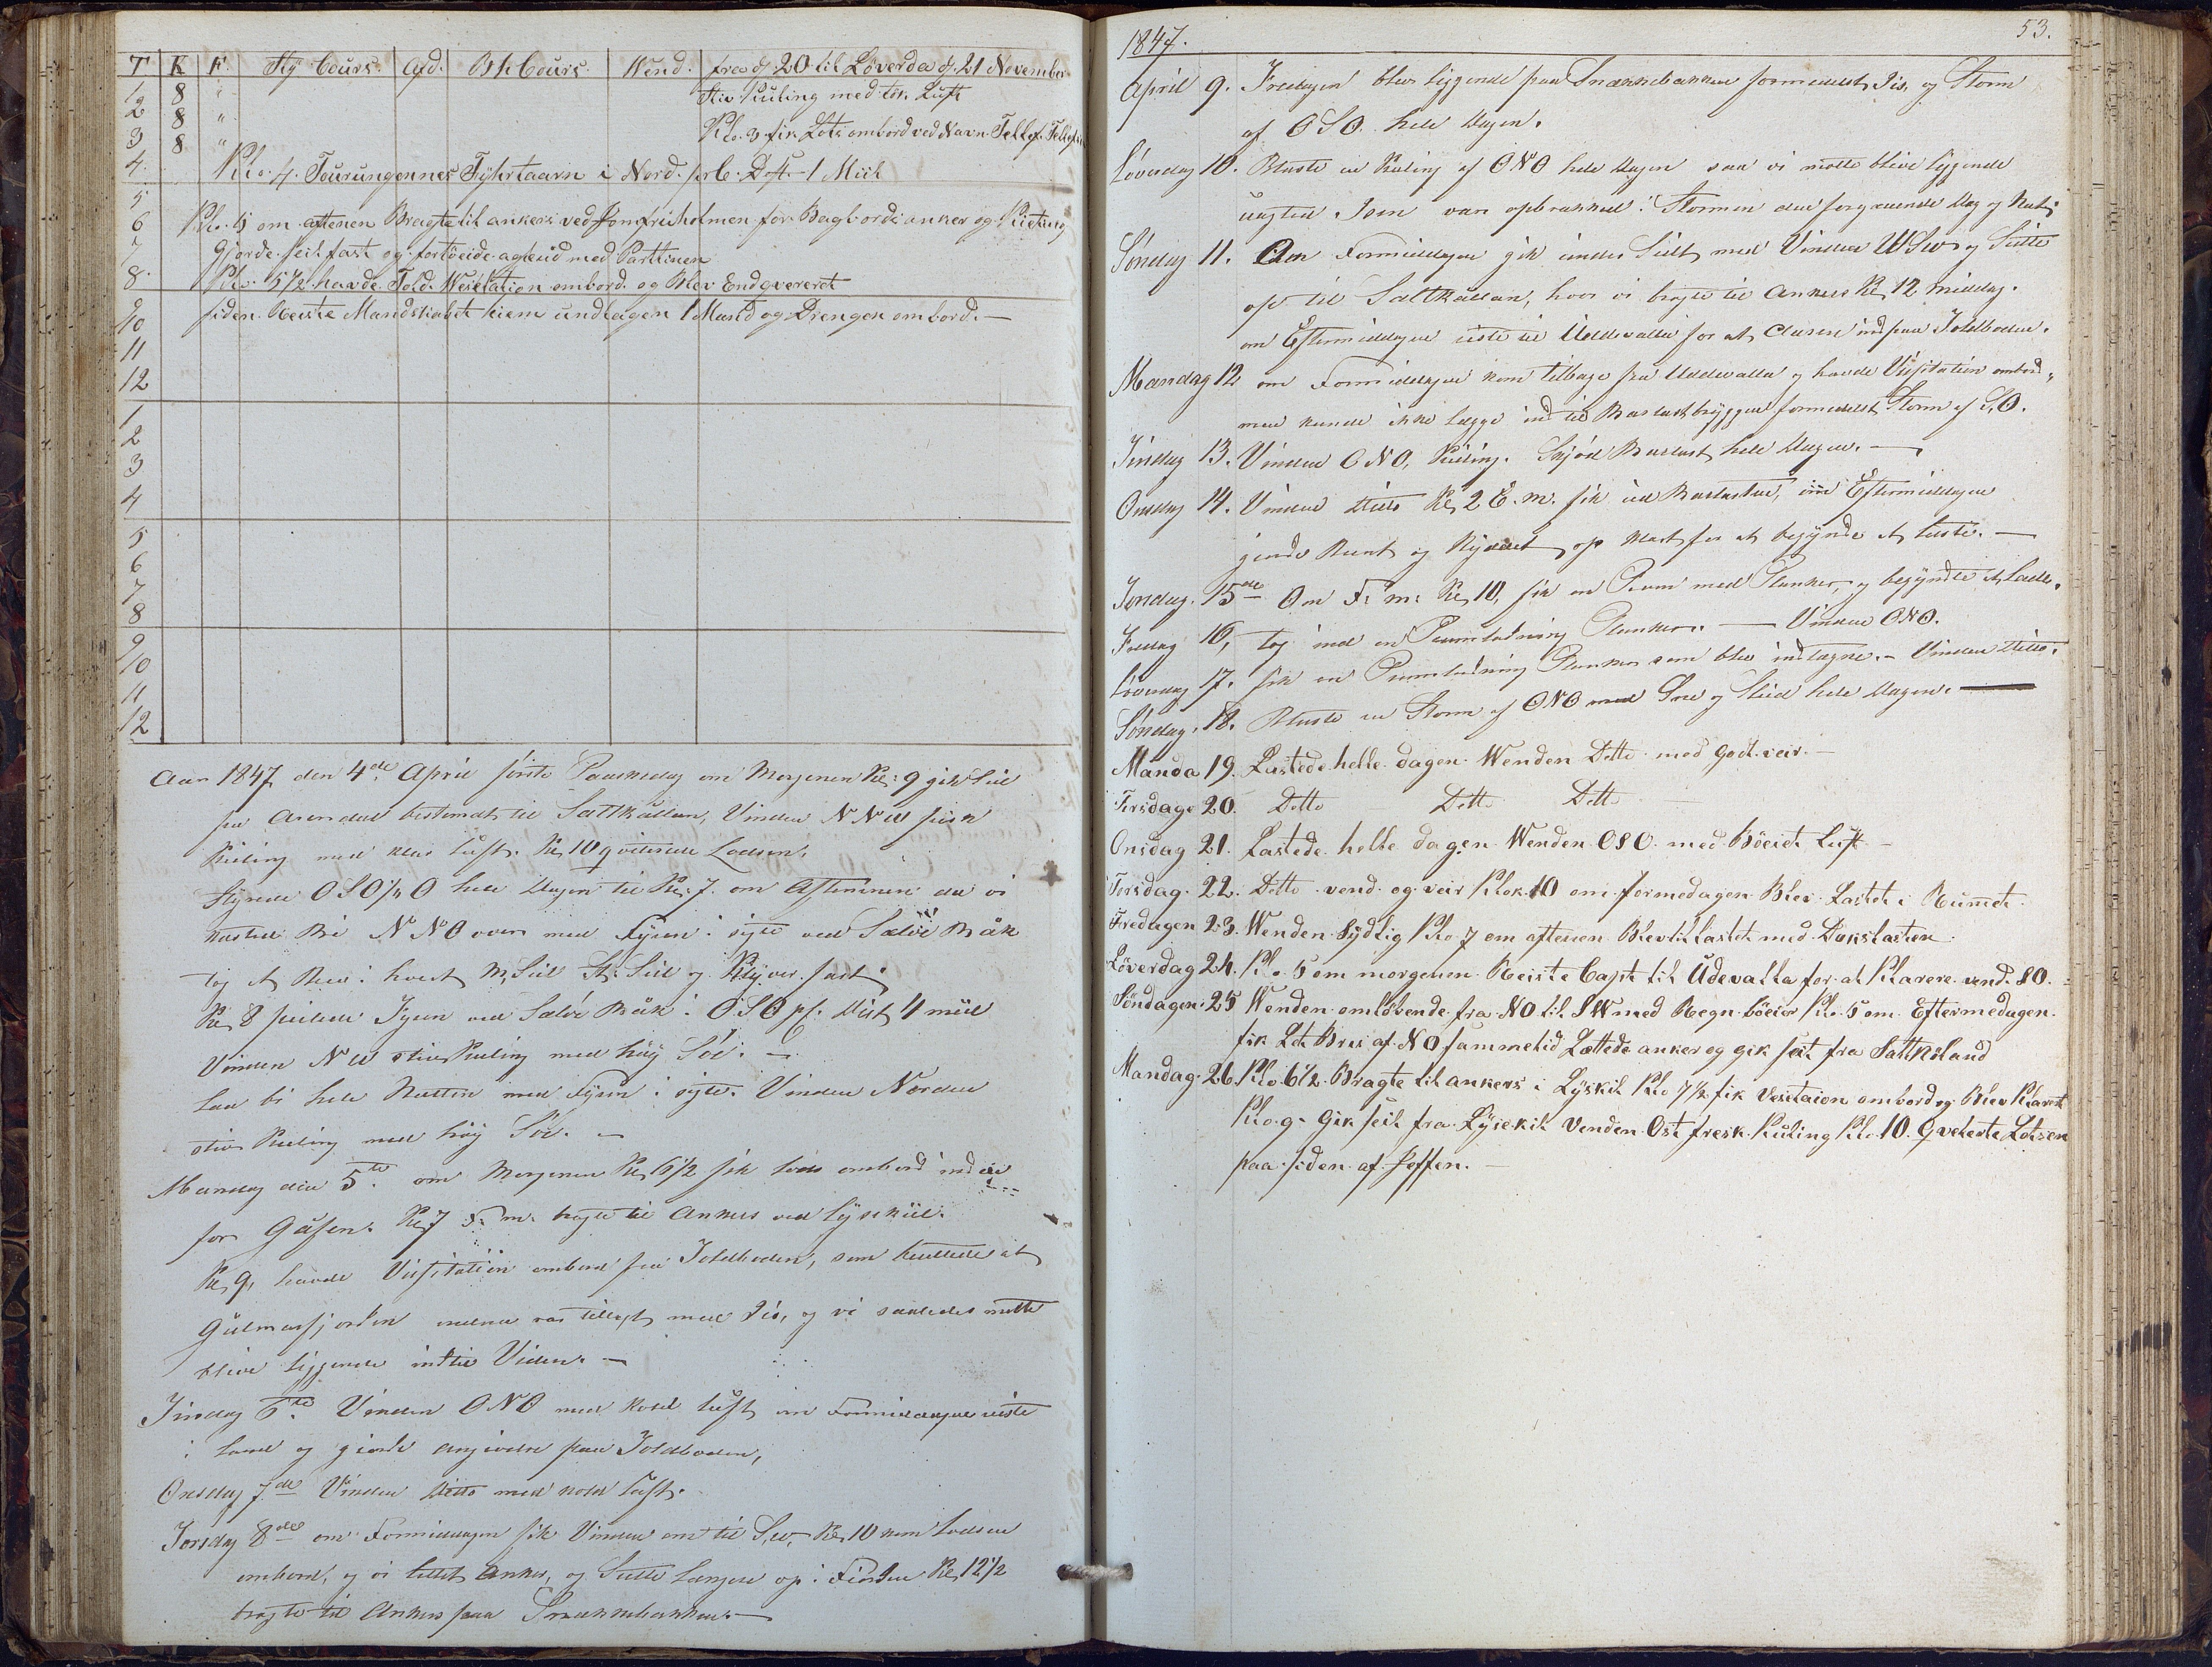 T. K F. Sty Cours. Afd. Bh Cours. Wend. fra d. 20 til Löverda d. 21 November
1 8 " Stiv Kuling med tök Luft
2 8 "
3 8 " Klo. 3 fik Lots ombord ved Navn Tellef
4. Klo. 4. Tourungennes Fÿhrtaarn i Nord. prC. Dst. 1 Miil
5
6 Klo. 5 om aftenen Bragte til ankers ved Jomfruholmen for Bagbords anker og Kietting
7 Gjorde seil fast og fortöeide agteud med Parttinen
8. Klo. 5 1/2 havde Told. Wesetation ombord og Blev Endqvereret
9 siden Reiste Mandskabet hiem undtagen 1 Mand og Drengen ombord. —
10
11
12
1
2
3
4
5
6
7
8
9
10
11
12
Aar 1847 den 4de April förste Paaskedag om Morgenen Kl: 9 gik Seil
fra Arendal bestemdt til Saltkallan, Vinden NNW frisk
Kuling med klar Luft. Kl 10 qviterede Lodsen.
Styrede OSO 1/2 O hele Dagen til Kl. 7. om Aftenen da vi
kastede Bi NNO over med Fyren i sigte ved Salöe Båk
tog et Reev i hvert M. Seil St. Seil og Klÿver fast;
Kl 8 peilede Fyren ved Salöe Båk i OSO pC. Dist 4 miil
Vinden NW stiv Kuling med høy Söe. —
Laa bi hele Natten med Fyren i sigte. Vinden Norden
stiv Kuling med høy Söe. —
Mandag den 5te om Morgenen Kl 6 1/2 fik Lods ombord ind
for Gåsen. Kl 7 F. m. bragte til Ankers ved Lysekiil.
Kl 9, havde Visitation ombord fra Toldboden, som at
Gulmarfjorden endnu var tillagt med Iis, og vi saaledes måtte
blive liggende indtil Viden. —
Tirsdag 6te Vinden ONO med kold Luft om Formiddagen reiste
i Land og giorde angivelse paa Toldboden,
Onsdag 7de Vinden ditto med kold Luft.
Torsdag 8de om Formiddagen fik Vinden om til S.W, Kl 10 kom Lodsen
ombord, og vi lettet Anker, og Seilte længere op i Fiorden Kl 12 1/2
bragte til Ankers paa Snækkebakken. —
1847. 53.
April 9. Fredagen blev liggende paa Snækkebakken formedelst Iis, og Storm
af OSO. hele Dagen.
Löverdag 10. Blæste en Kuling af ONO hele Dagen saa vi måtte blive liggende
uagted Isen var opbrækked i Stormen den foregaaende Dag og Nat;
Söndag 11. Om Formiddagen gik under Seil med Vinden WSW og Seilte
op til Saltkallan, hvor vi bragte til Ankers Kl 12 Middag.
om Eftermiddagen reiste til Uddevalla for at Clarere ind paa Toldboden.
Mandag 12 om Formiddagen kom tilbage fra Uddevalla og havde Visitation ombord,
men kunde ikke lægge ind til Barlastbryggen formedelst Storm af S,O.
Tirsdag 13. Vinden ONO, Kuling. Skjöd Barlast hele Dagen. —
Onsdag 14. Vinden ditto Kl 2 E. m. fik ud Barlasten, om Eftermiddagen
giorde Reent og Ryddet op klart for at begynde at laste. —
Torsdag. 15de Om F. m: Kl 10, fik en Pram med Planker, og begyndte at lade.
Fredag 16, tog ind en Pramladning Planker. — Vinden ONO.
Löverdag 17. fik en Pramladning Planker som blev indtagne. — Vinden ditto.
Söndag. 18. Blæste en Storm af ONO med Sne og Slud hele Dagen. —
Manda 19. Lastede helle dagen Wenden Ditto med Godt veir. —
Tirsdage 20. Ditto Ditto Ditto —
Onsdag 21. Lastede helle dagen Wenden OSO med Böeiet Luft —
Torsdag. 22. Ditto vend og veir Klok. 10 om formedagen Blev Lastet i Rumet.
Fredagen 23. Wenden Sÿdlig Klo 7 om aftenen Blev tillastet med Dækslasten
Löverdag 24. Klo. 5 om morgenen Reiste Capt til Udevalla for at Klarere vend. SO.
Söndagen. 25 Wenden omlöbende fra NO til SW med Regn böeier Klo. 5 om Eftermedagen
fik Let Bris af NO sammetid Lættede anker og gik seil fra Saltkoland
Mandag. 26. Klo. 6 1/2. Bragte til ankers i Lÿskil Klo 7 1/2 fik Vesetaion ombord og Blev Klareret
Klo. 9. Gik seil fra Lÿsekil Venden Ost fresk Kuling Klo. 10. Qveterte Lotsen
paa siden af Joffen. —